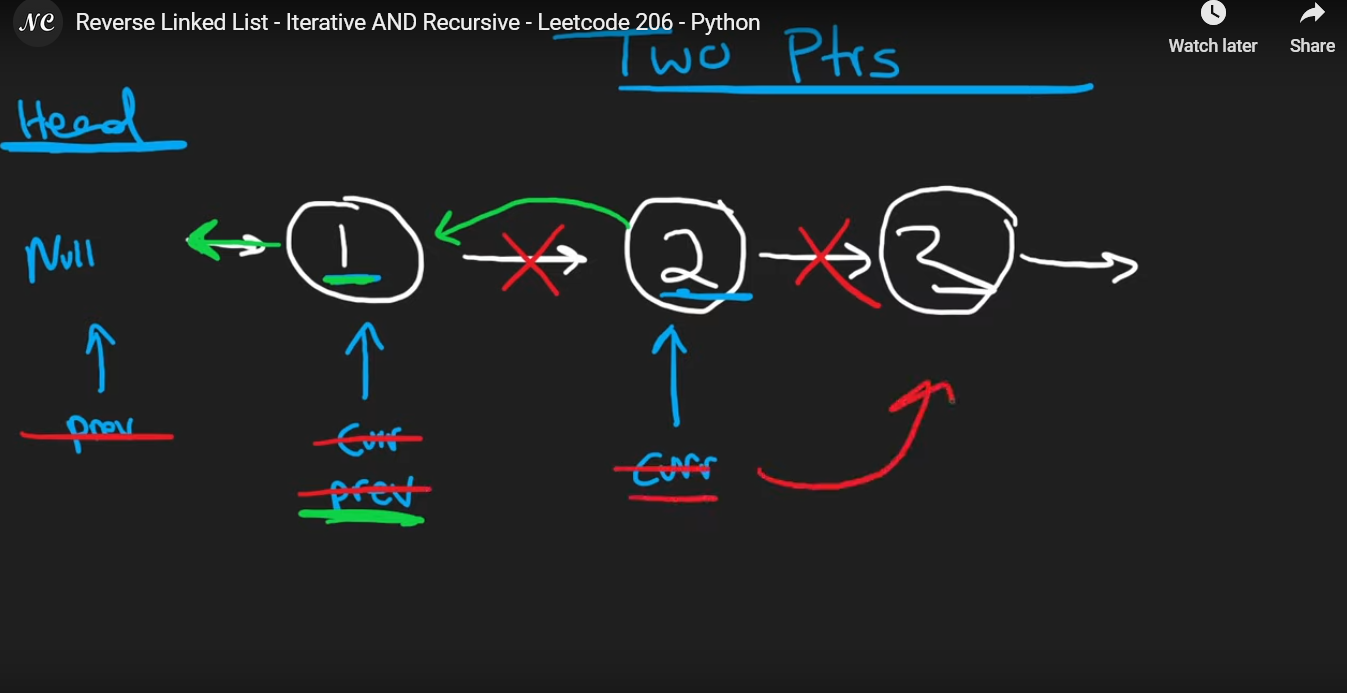 NC Reverse Linked List - Iterative AND Recursive - Leetcode 206 - Python
Watch later
Share
Two Ptrs
Head
Null
1
2
3
prev
Curr
Curr
prev